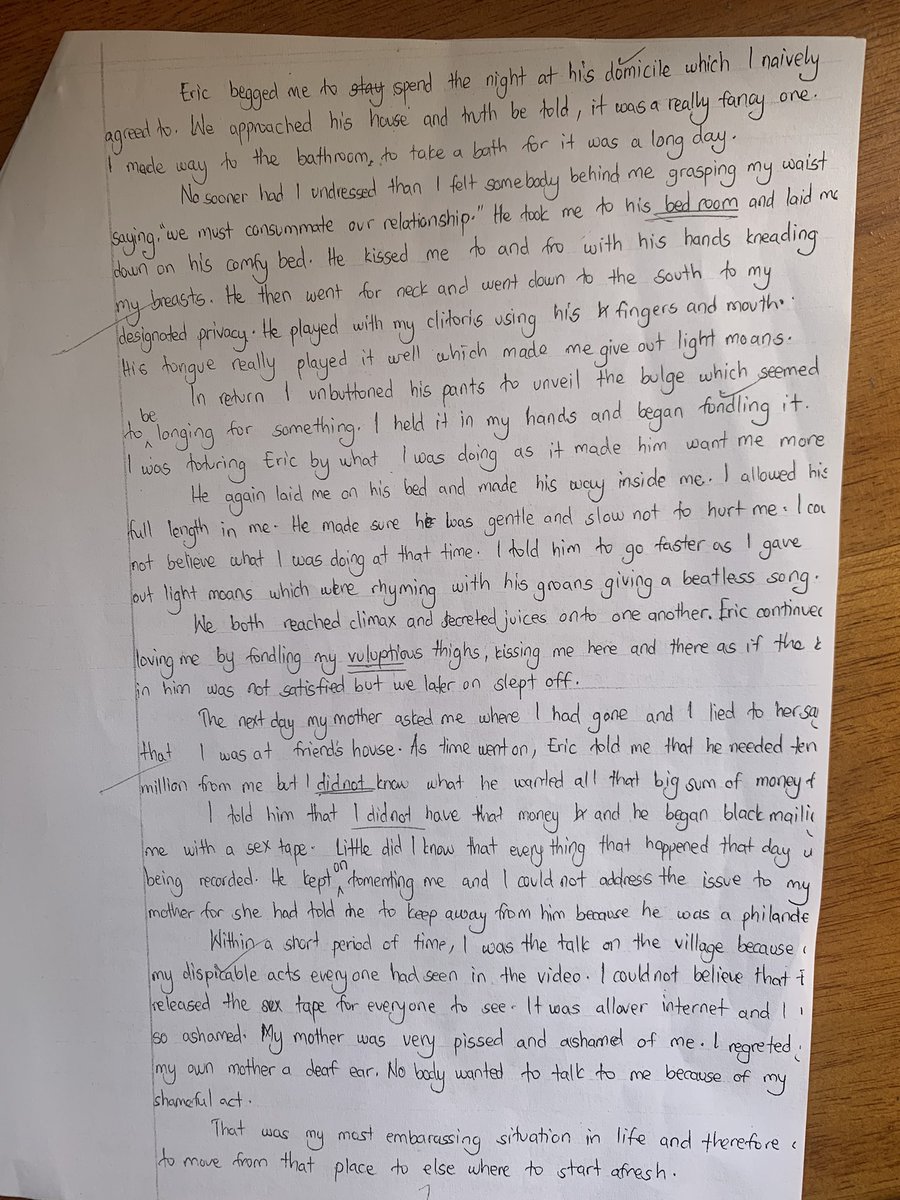 Eric begged me to stay spend the night at his domicile which I naively
agreed to. We approached his house and truth be told, it was a really fancy one.
I made way to the bathroom, to take a bath for it was a long day.
No sooner had I undressed than I felt somebody behind me grasping my waist
saying, "we must consummate our relationship." He took me to his bed room and laid me
down on his comfy bed. He kissed me to and fro with his hands kneading
my breasts. He then went for neck and went down to the south to my
designated privacy. He played with my clitoris using his fingers and mouth.
His tongue really played it well which made me give out light moans.
In return I unbuttoned his pants to unveil the bulge which seemed
to be longing for something. I held it in my hands and began fondling it.
I was toturing Eric by what I was doing as it made him want me more
He again laid me on his bed and made his way inside me. I allowed his
full length in me. He made sure he was gentle and slow not to hurt me. I
not believe what I was doing at that time. I told him to go faster as I gave
out light moans which were rhyming with his groans giving a beatless song.
We both reached climax and secreted juices onto one another. Eric continued
loving me by fondling my vuluptious thighs, kissing me here and there as if the
in him was not satisfied but we later on slept off.
The next day my mother asked me where I had gone and I lied to her
that I was at friend's house. As time went on, Eric told me that he needed ten
million from me but I didnot know what he wanted all that big sum of money
I told him that I didnot have that money and he began black
me with a sex tape. Little did I know that every thing that happened that day
being recorded. He kept on tomenting me and I could not address the issue to my
mother for she had told me to keep away from him because he was a
Within a short period of time, I was the talk on the village because
my dispicable acts everyone had seen in the video. I could not believe that
released the sex tape for everyone to see. It was allover internet and I
so ashamed. My mother was very pissed and ashamed of me. I regretted
my own mother a deaf ear. No body wanted to talk to me because of my
shameful act.
That was my most embarassing situation in life and therefore
to move from that place to else where to start afresh.